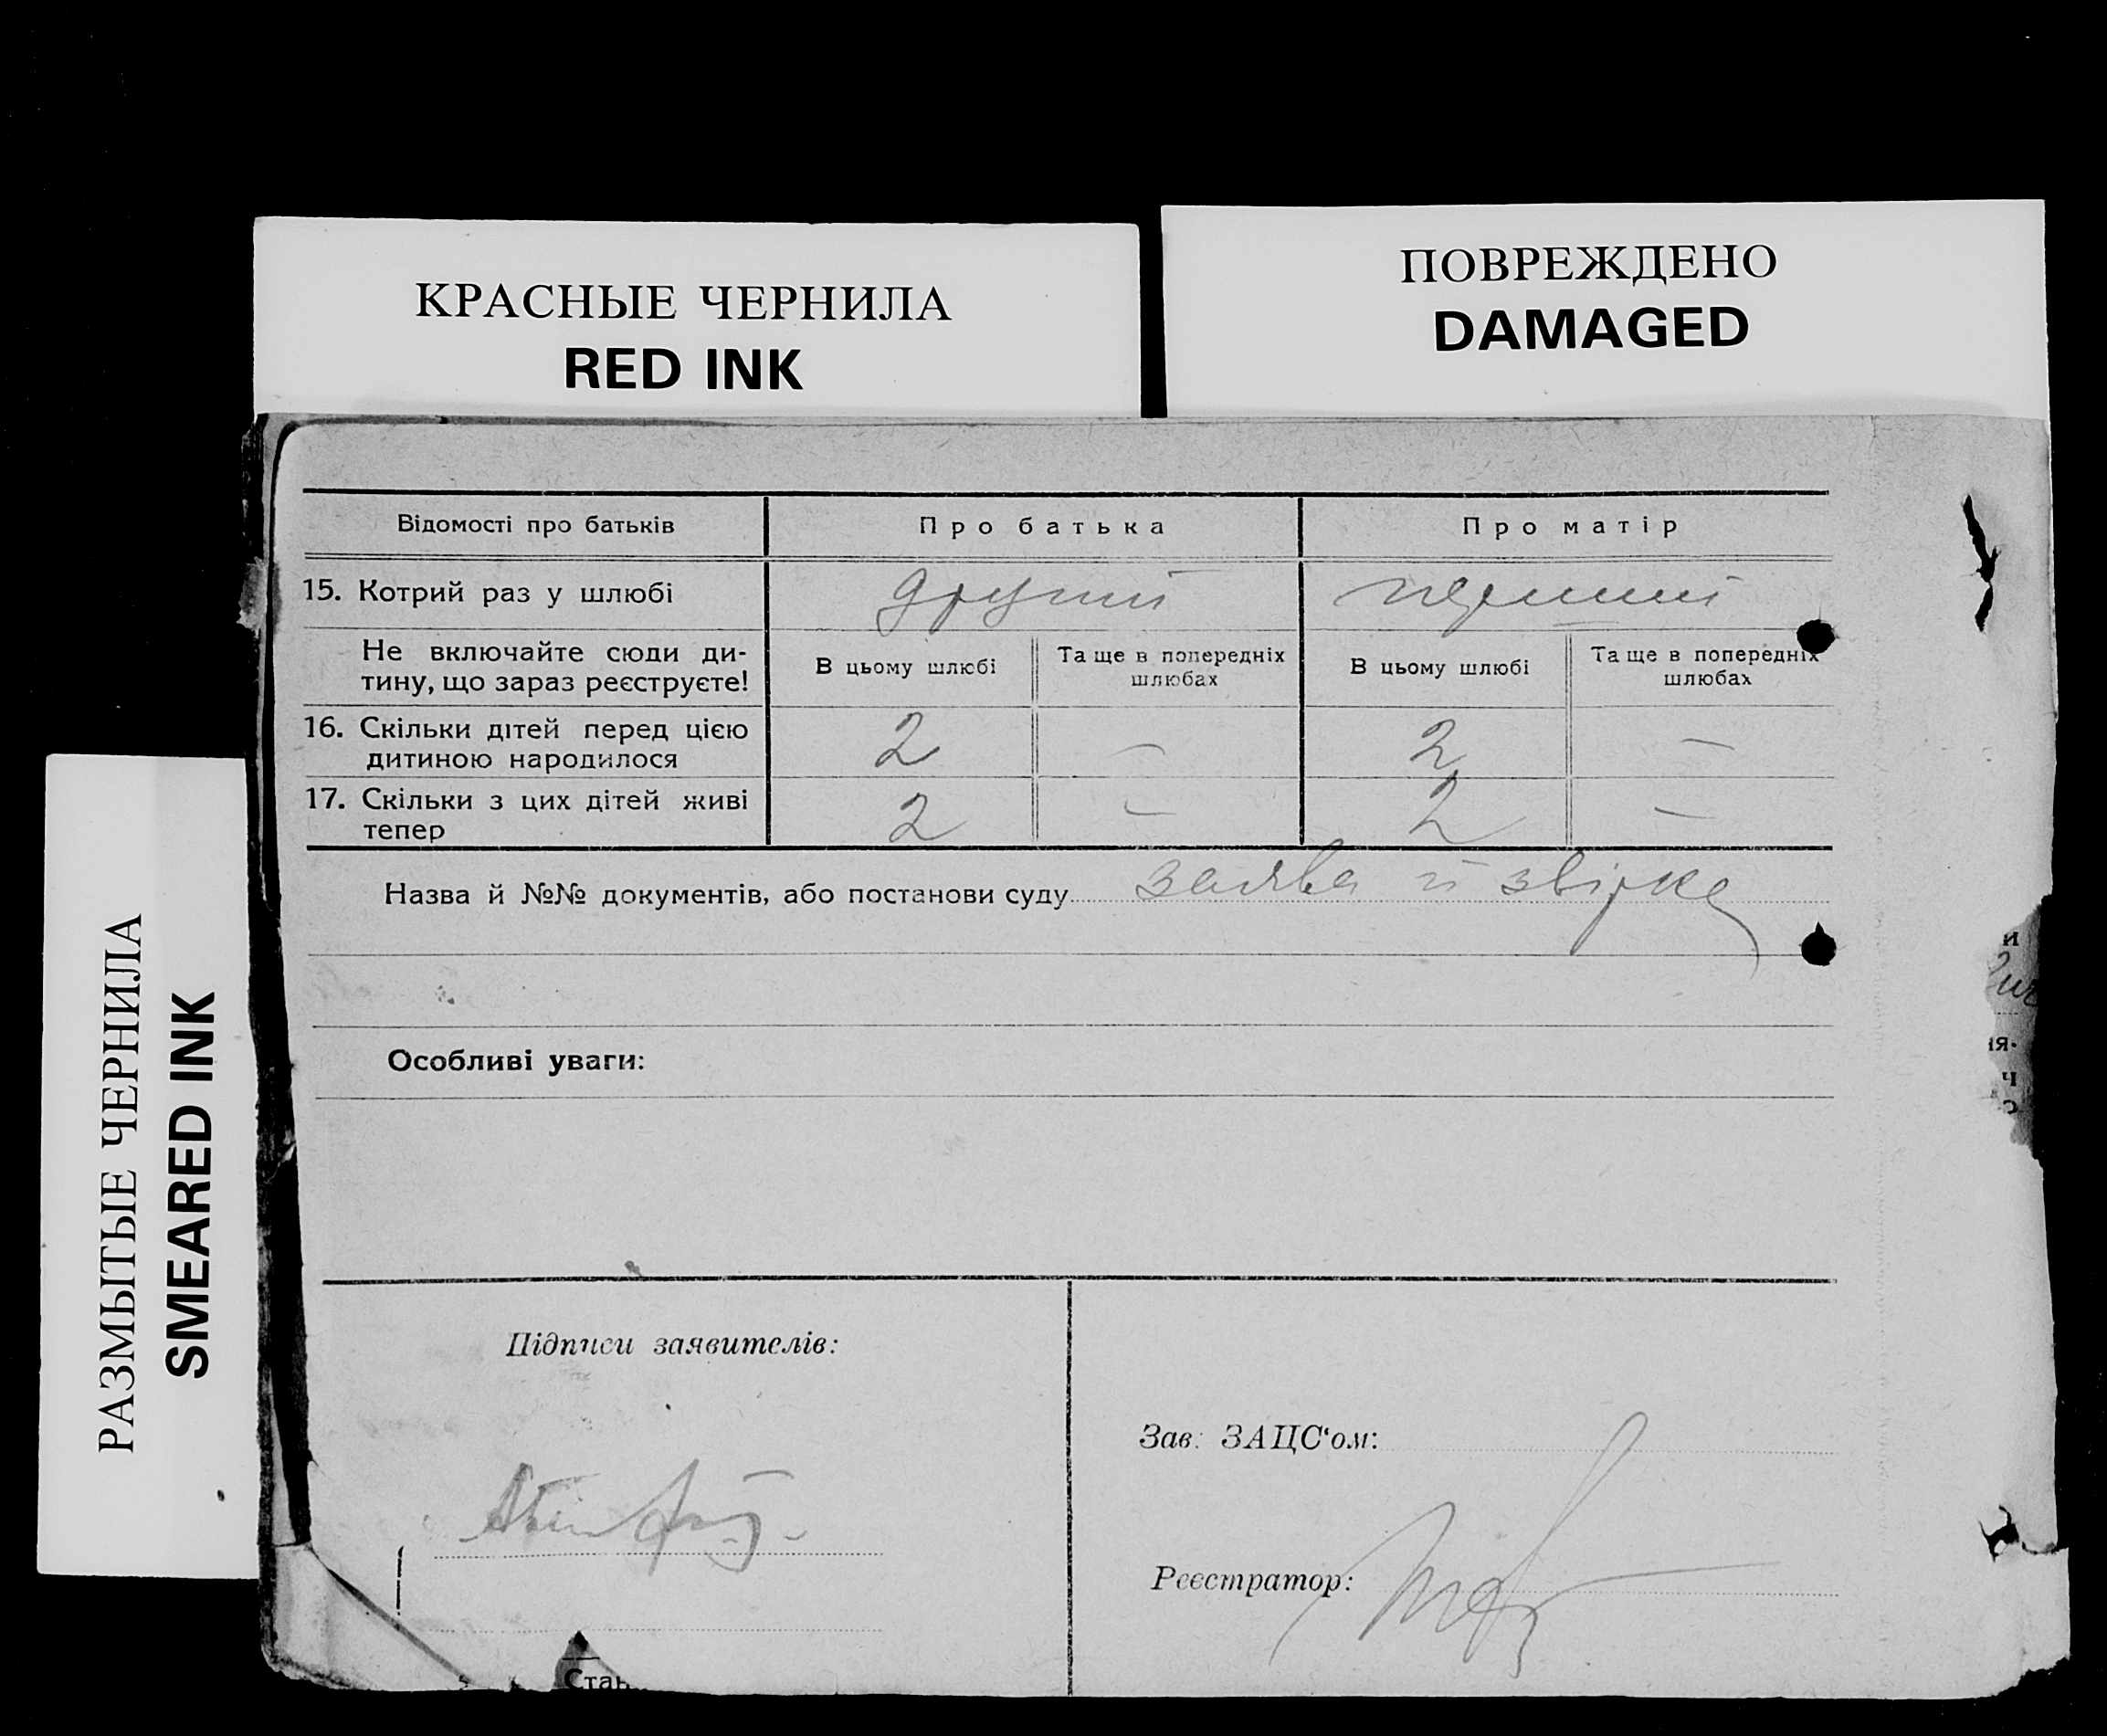 КРАСНЫЕ ЧЕРНИЛА
RED INK
ПОВРЕЖДЕНО
DAMAGED
РАЗМЫТЫЕ ЧЕРНИЛА
SMEARED INK
Відомості про батьків
Про батька
Про матір
15. Котрий раз у шлюбі
другий
перший
Не включайте сюди ди-
тину, що зараз реєструєте!
В цьому шлюбі
Та ще в попередніх
шлюбах
В цьому шлюбі
Та ще в попередніх
шлюбах
16. Скільки дітей перед цією
дитиною народилося
2
—
2
—
17. Скільки з цих дітей живі
тепер
2
—
2
—
Назва й №№ документів, або постанови суду заява й звірка
Особливі уваги:
Підписи заявителів:
Зав. ЗАЦС‘ом:
Реєстратор:
Стан
и
ія-
ч